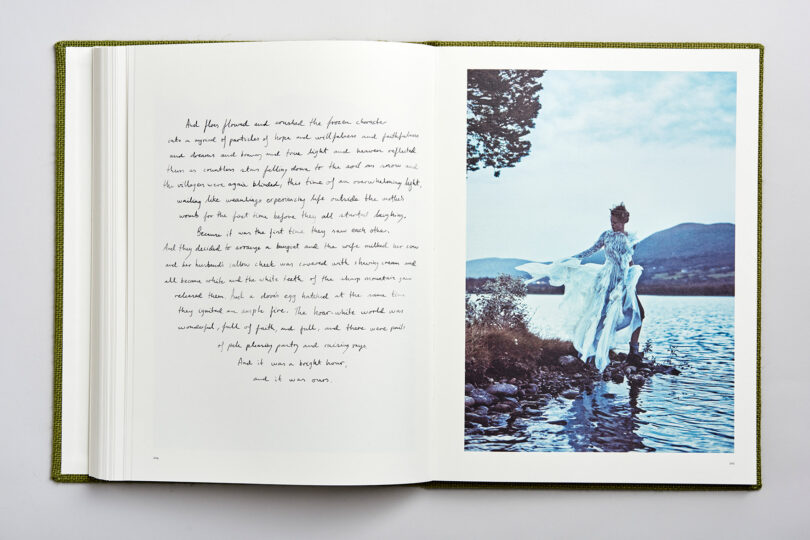 And flois flowed and crushed the frozen character
into a myriad of particles of hope and willfulness and faithfulness
and dreams and bravery and true light and heaven reflected
them as countless stars falling down to the soil as snow and
the villagers were again blinded, this time of an overwhelming light,
wailing like weanlings experiencing life outside the mothers
womb for the first time before they all started laughing.
Because it was the first time they saw each other.
And they decided to arrange a banquet and the wife milked her cow
and her husbands callow cheek was covered with shaving cream and
all became white and the white teeth of the sharp mountain jaw
released them. And a dove's egg hatched at the same time
they ignited an ample fire. The hoar-white world was
wonderful, full of faith, and full, and there were pails
of pale pleasing party and raising rays.
And it was a bright hour,
and it was ours.